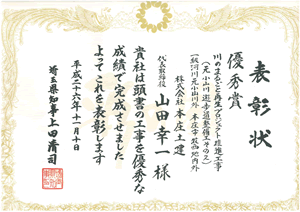 表彰状
優秀賞
川のまるごと再生プロジェクト推進工事
(元小山川遊歩道整備工その2)
一級河川元小山川外 本庄市
株式会社 本庄土建
代表取締役 山田幸一様
貴社は頭書の工事を優秀な
成績で完成させました
よってこれを表彰します
平成二十六年十一月十日
埼玉県知事上田清司